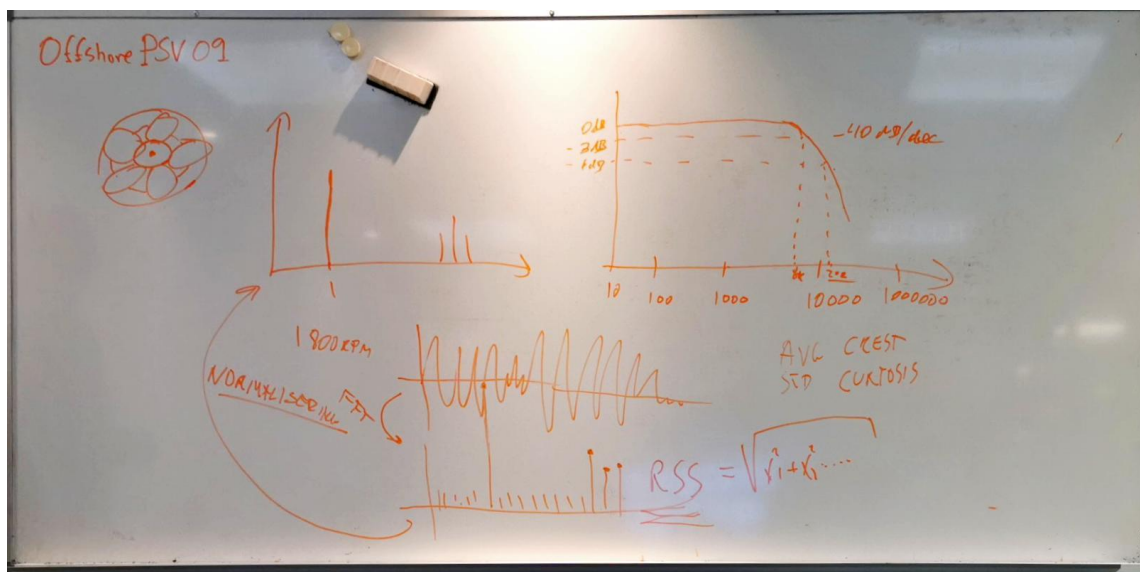 Offshore PSV 09
0dB
-3dB
-40 dB/dec
10 100 1000 10000 1000000
1
1800 RPM
NORMALISERING
FFT
AVG CREST
STD CURTOSIS
RSS = √x₁²+x₁²....